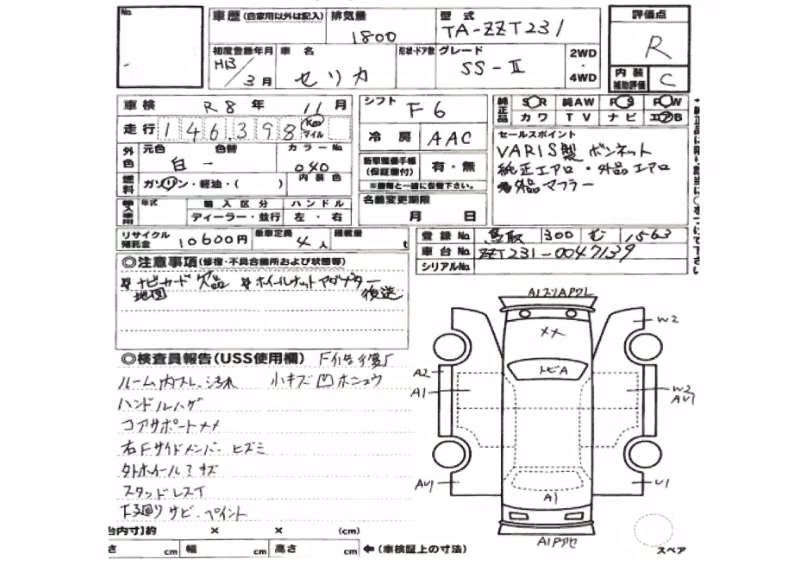 No.
車歴 (自家用以外は記入)
排気量 1800
型式 TA-ZZT231
評価点 R
初度登録年月 H13/3月
車名 セリカ
形状・ドア数
グレード SS-Ⅱ
2WD・4WD
内装補助評価 C
車検 R8年 11月
シフト F6
純正品 SR 純AW PS PW
カワ TV ナビ エアB
走行 146,398 Km マイル
冷房 AAC
セールスポイント
VARIS製 ボンネット
純正エアロ・外品エアロ
外品マフラー
外色 元色 色替 カラーNo.
白 ー 040
新車整備手帳(保証書付) 有・無
※書類と一緒に保管下さい。
燃料 ガソリン・軽油・( ) 内装色
名義変更期限 月 日
輸入車用 年式 輸入区分 ハンドル
ディーラー・並行 左・右
リサイクル預託金 10600円
乗車定員 4人
積載量 t
登録No. 鳥取 300 む 1563
車台No. ZZT231-0047139
シリアルNo.
◎注意事項(修復・不具合箇所および状態等)
※ナビカード欠品 ※ホイールナットアダプター後送
地図
◎検査員報告(USS使用欄) F
ルーム内スレ、汚れ 小キズ凹ホシュウ
ハンドルハゲ
コアサポートメメ
右Fサイドメンバー ヒズミ
外ホイール キズ
スタッドレス
下廻りサビ、ペイント
台内寸)約 × × (cm)
さ cm 幅 cm 高さ cm ←(車検証上の寸法)
メメ
トビA
W2
A2
A1
W3
AU1
AU1
U1
A1
スペア